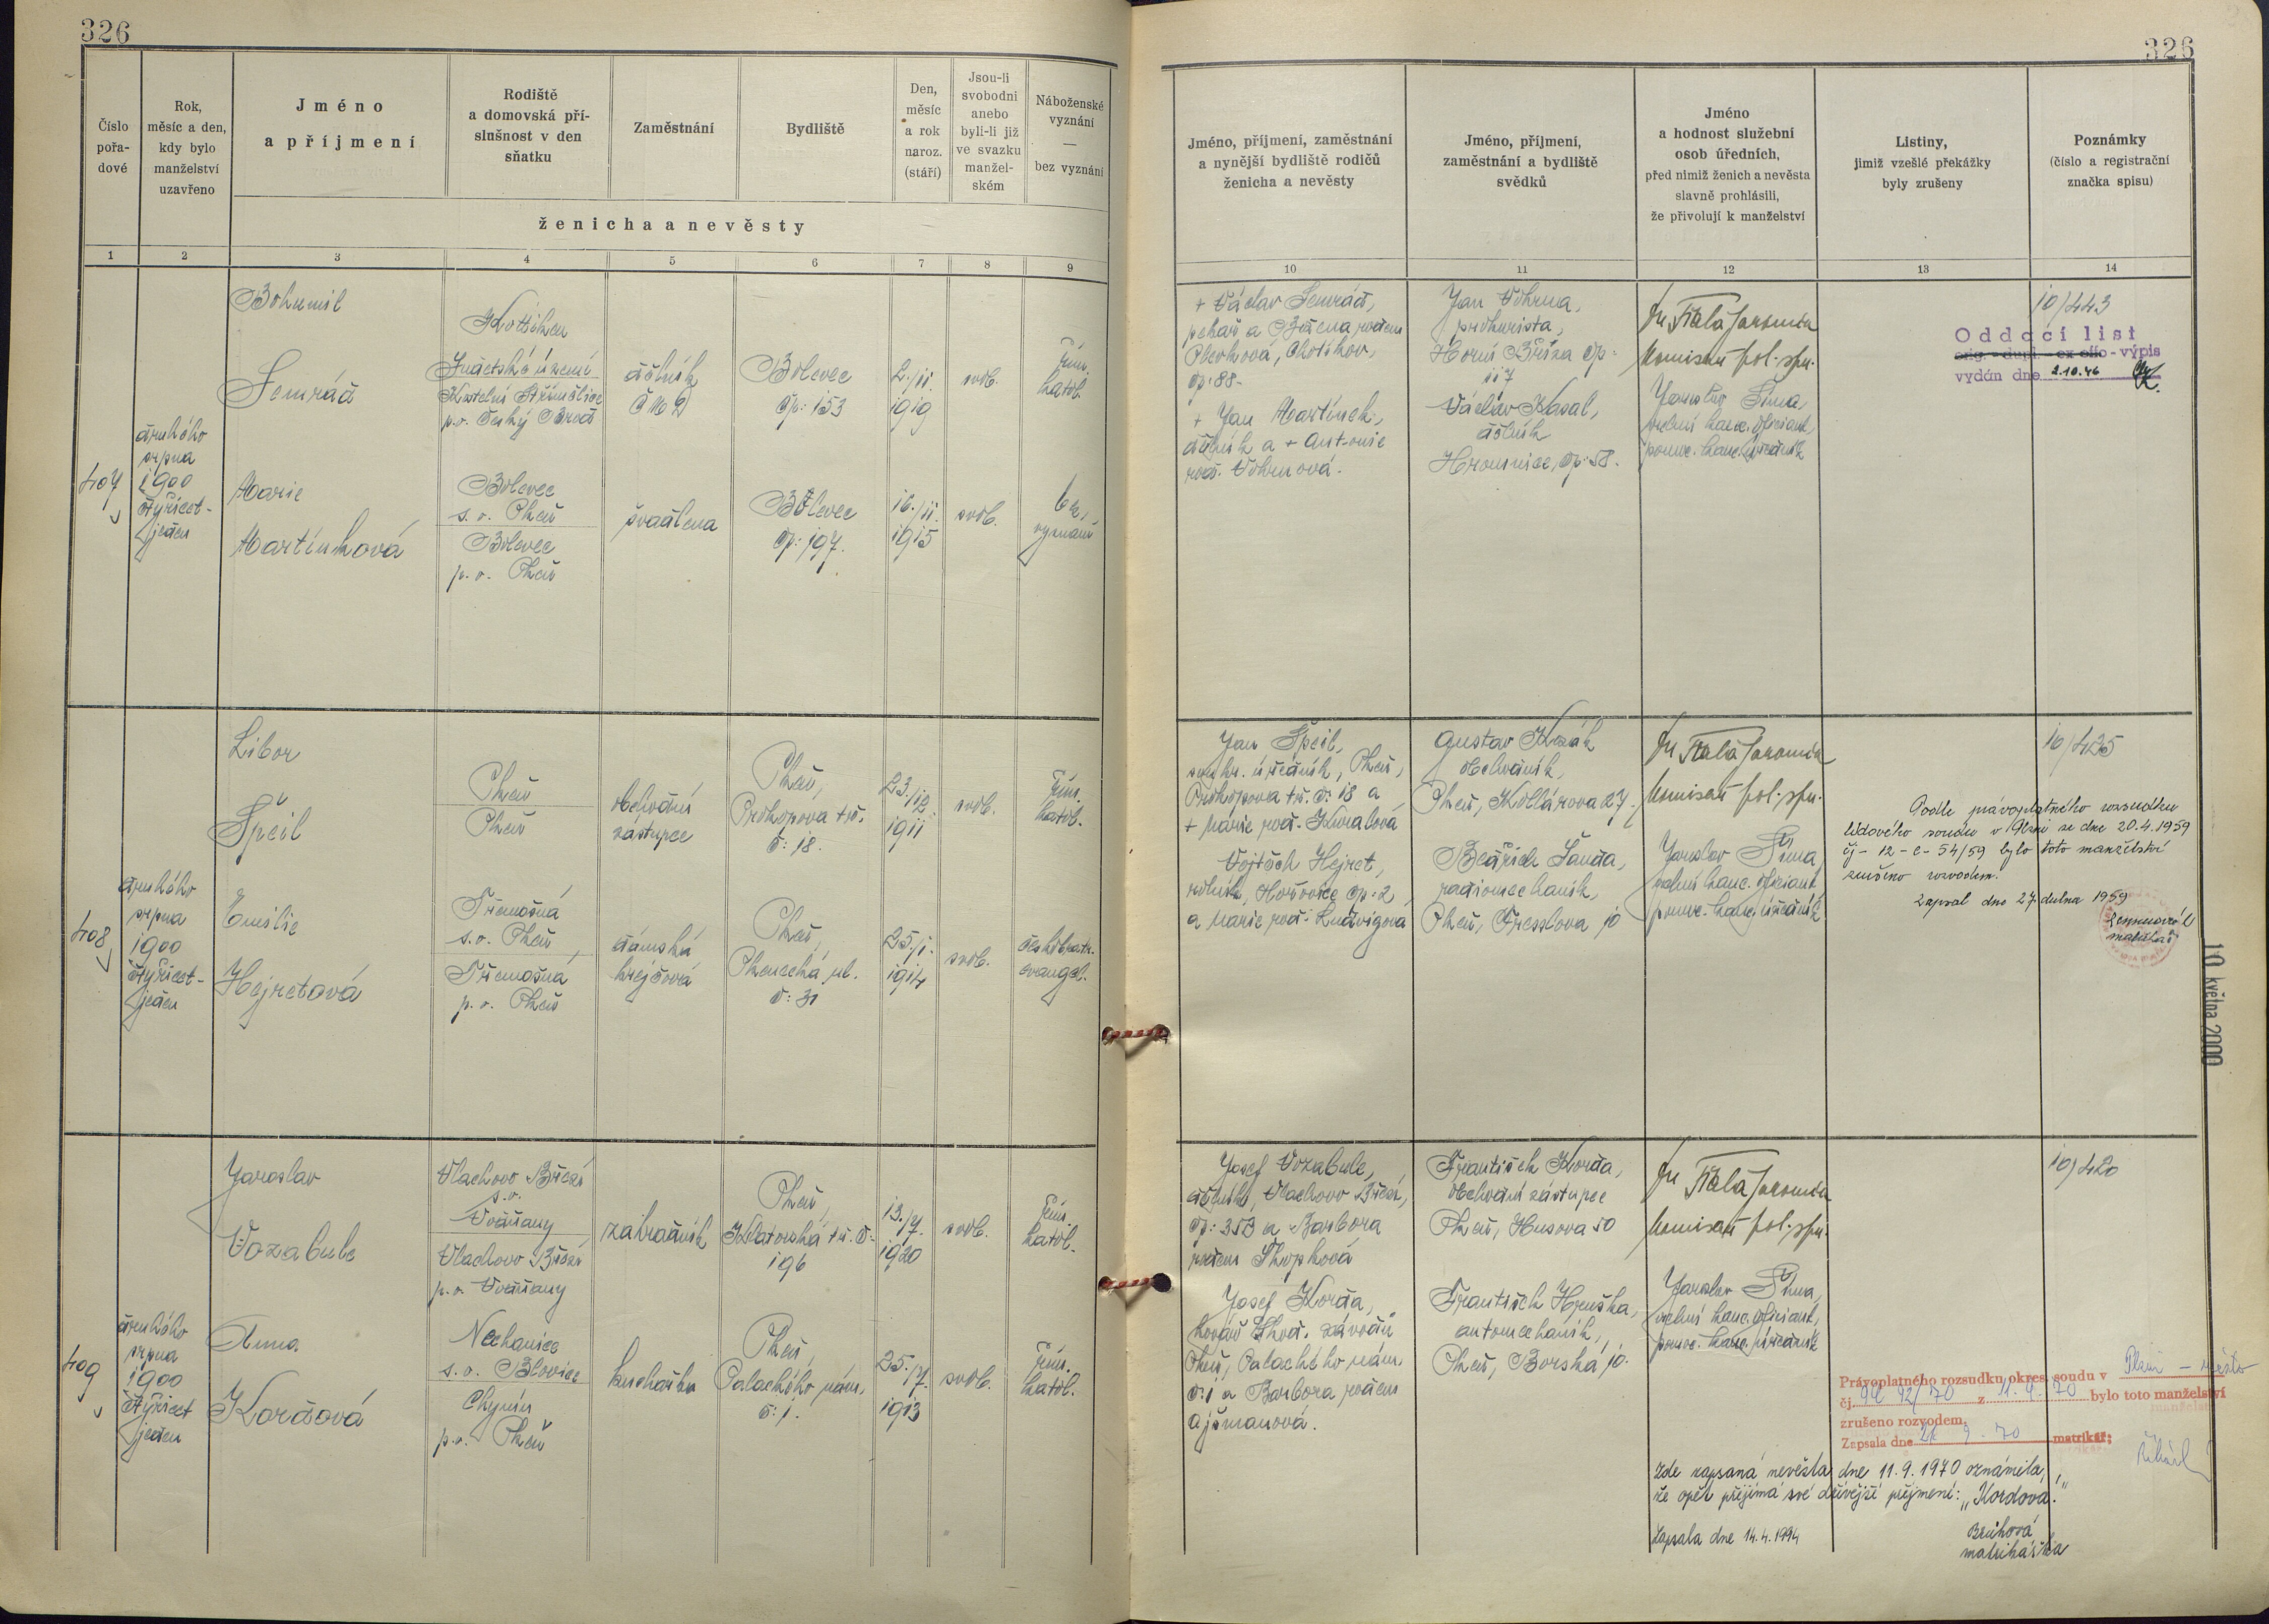 326
326
Číslo
pořa-
dové
Rok,
měsíc a den,
kdy bylo
manželství
uzavřeno
Jméno
a příjmení
Rodiště
a domovská pří-
slušnost v den
sňatku
Zaměstnání
Bydliště
Den,
měsíc
a rok
naroz.
(stáří)
Jsou-li
svobodni
anebo
byli-li již
ve svazku
manžel-
ském
Náboženské
vyznání
—
bez vyznání
ženicha a nevěsty
Jméno, příjmení, zaměstnání
a nynější bydliště rodičů
ženicha a nevěsty
Jméno, příjmení,
zaměstnání a bydliště
svědků
Jméno
a hodnost služební
osob úředních,
před nimiž ženich a nevěsta
slavně prohlásili,
že přivolují k manželství
Listiny,
jimiž vzešlé překážky
byly zrušeny
Poznámky
(číslo a registrační
značka spisu)
1 2 3 4 5 6 7 8 9 10 11 12 13 14
407
druhého
srpna
1900
čtyřicet-
jeden
Bohumil
Semrád
Kostelní Střimelice
p.o. Český Brod
dělník
Bolevec
čp: 153
2./11.
1919
svob.
řím.
katol.
Marie
Martínková
Bolevec
s. o. Plzeň
Bolevec
p. o. Plzeň
švadlena
Bolevec
čp: 197.
16./11.
1915
svob.
bez
vyznání
+ Václav Semrád,
pekař a Božena rodem
Chotíkov,
čp: 88-
+ Jan Martínek,
dělník a + Antonie
roz. Vohrnová.
Jan Vohrna,
prokurista,
Horní Bříza čp:
117
Václav Kasal,
dělník
Hromnice, čp: 58.
Dr Fiala Jaromír
komisař pol. spr.
Jaroslav Šíma,
kanc. oficiant
pomoc. kanc. úředník
10/443
Oddací list
orig. - dupl. - ex offo - výpis
vydán dne 2.10.46
408
druhého
srpna
1900
čtyřicet-
jeden
Libor
Špeil
Plzeň
Plzeň
obchodní
zástupce
Plzeň,
Prokopova tř.
č: 18.
23./12.
1911
svob.
řím.
katol.
Emilie
Hejretová
Třemošná
s. o. Plzeň
Třemošná
p. o. Plzeň
dámská
krejčová
Plzeň,
Plzenecká ul.
č: 31
25./1.
1914
svob.
českobratr.
evangel.
Jan Špeil,
soukr. úředník, Plzeň,
Prokopova tř. č: 18 a
+ Marie roz. Kuralová
Vojtěch Hejret,
rolník, Horšovice čp: 2
a Marie roz. Ludvigová
Gustav Kozák
obchodník,
Plzeň, Kollárova 27.
Bedřich Landa,
radiomechanik,
Plzeň, Tresslova 10
Dr Fiala Jaromír
komisař pol. spr.
Jaroslav Šíma
kanc. oficiant
pomoc. kanc. úředník
10/425
Podle právoplatného rozsudku
lidového soudu v Plzni ze dne 20.4.1959
čj - 12 - c - 54/59 bylo toto manželství
zrušeno rozvodem.
Zapsal dne 27. dubna 1959
matrikář
10 května 2000
409
druhého
srpna
1900
čtyřicet
jeden
Jaroslav
Vozabule
Vlachovo Březí
s.o.
Vodňany
Vlachovo Březí
p. o. Vodňany
zahradník
Plzeň,
Klatovská tř. č:
196
13./7.
1920
svob.
řím.
katol.
Anna
Kordová
Nechanice
s. o. Blovice
Chynín
p. o. Plzeň
kuchařka
Plzeň,
Palackého nám.
č: 1.
25./7.
1913
svob.
řím.
katol.
Josef Vozabule,
dělník, Vlachovo Březí,
čp: 353 a Barbora
rodem Skopková
Josef Korda,
kovář Škod. závodů
Plzeň, Palackého nám.
č: 1 a Barbora rodem
Ajšmanová.
František Korda,
obchodní zástupce
Plzeň, Husova 50
František Hruška,
automechanik,
Plzeň, Borská 10.
Dr Fiala Jaromír
komisař pol. spr.
Jaroslav Šíma,
kanc. oficiant,
pomoc. kanc. úředník
10/420
Právoplatného rozsudku okres. soudu v Plzni - město
čj. 9C 92/70 z 11.9.70 bylo toto manželství
zrušeno rozvodem.
Zapsala dne 21. 9. 70 matrikář:
Zde zapsaná nevěsta dne 11.9.1970 oznámila,
že opět přijímá své dřívější příjmení: „Kordová."
Zapsala dne 14.4.1994
Brůhová
matrikářka